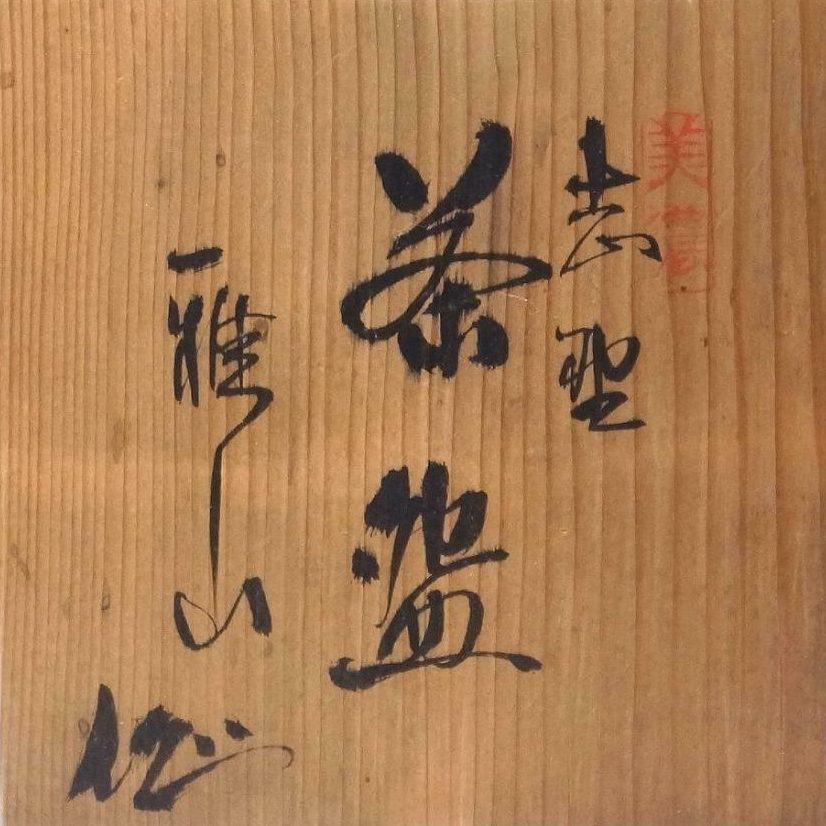 美濃
志野
茶盌
雅山